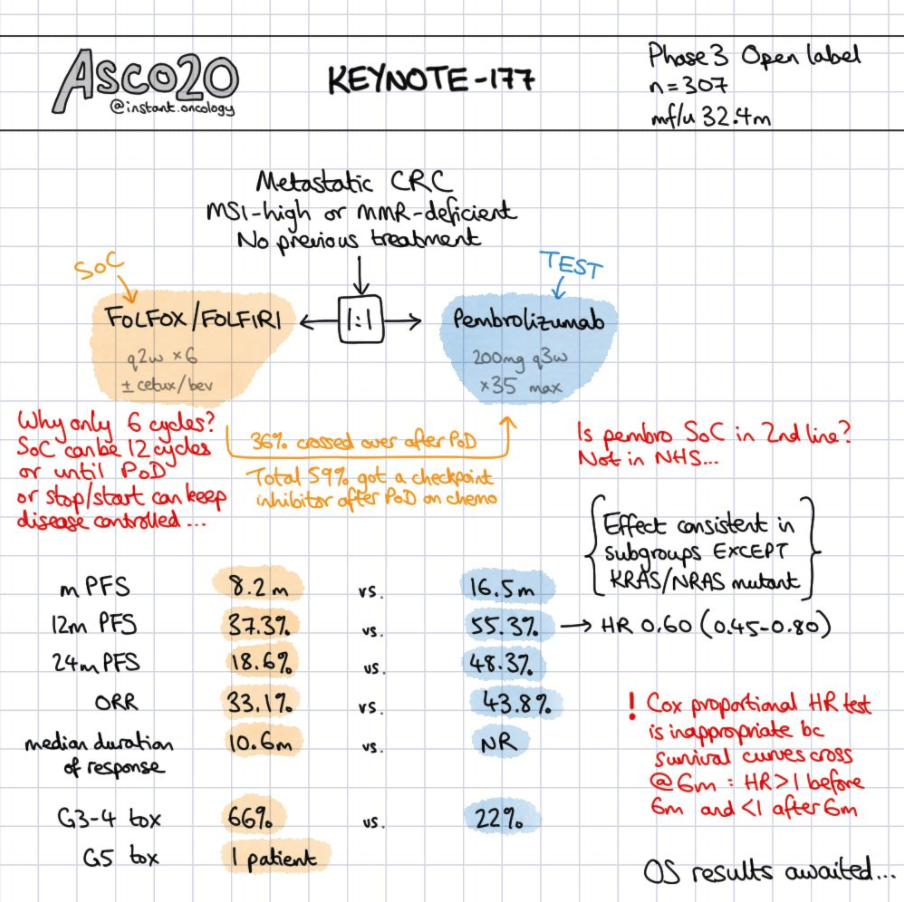 Asco20
@instant.oncology
KEYNOTE-177
Phase 3 Open label
n=307
mf/u 32.4m
Metastatic CRC
MSI-high or MMR-deficient
No previous treatment
SoC
TEST
FOLFOX/FOLFIRI
1:1
Pembrolizumab
q2w x6
± cetux/bev
200mg q3w
x35 max
Why only 6 cycles?
SoC can be 12 cycles
or until PoD
or stop/start can keep
disease controlled...
36% crossed over after PoD
Total 59% got a checkpoint
inhibitor after PoD on chemo
Is pembro SoC in 2nd line?
Not in NHS...
Effect consistent in
subgroups EXCEPT
KRAS/NRAS mutant
mPFS 8.2m vs. 16.5m
12m PFS 37.3% vs. 55.3% → HR 0.60 (0.45-0.80)
24mPFS 18.6% vs. 48.3%
ORR 33.1% vs. 43.8%
median duration
of response
10.6m vs. NR
! Cox proportional HR test
is inappropriate bc
survival curves cross
@6m : HR>1 before
6m and <1 after 6m
G3-4 tox 66% vs. 22%
G5 tox 1 patient
OS results awaited...